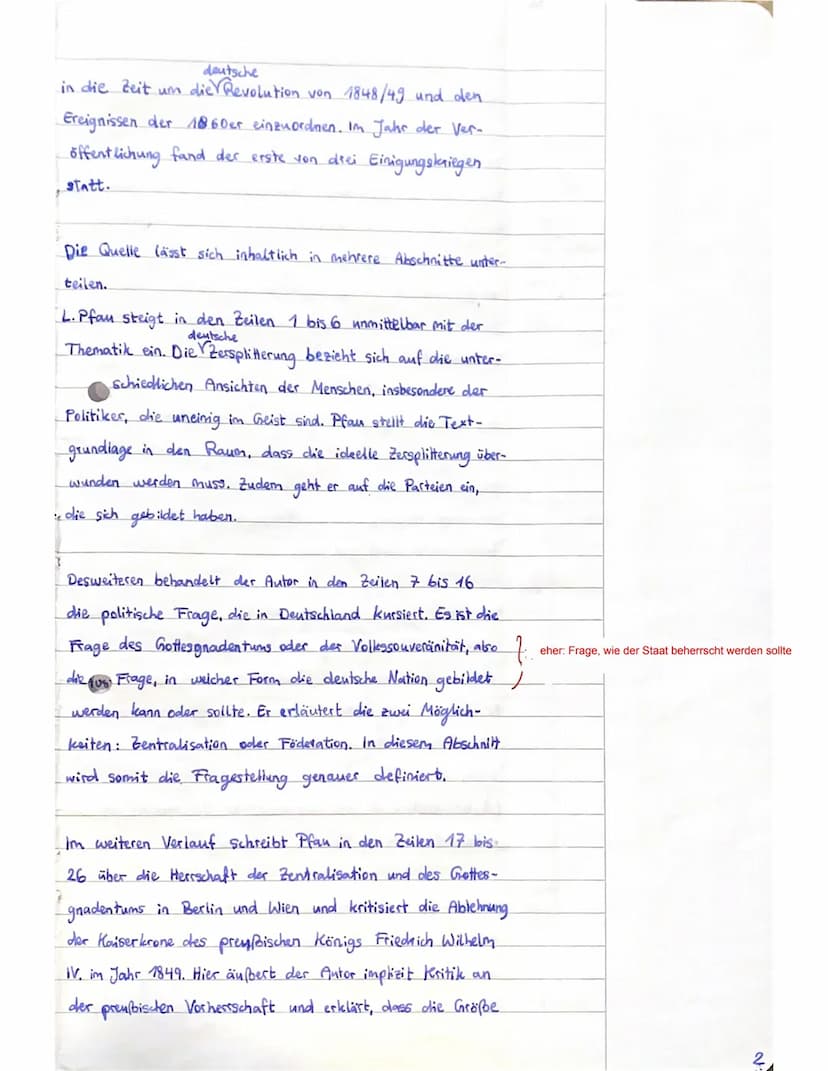 deutsche
in die Zeit um die Revolution von 1848/49 und den
Ereignissen der 1860er einzuordnen. Im Jahr der Ver-
öffentlichung fand der erste von drei Einigungskriegen
statt.
Die Quelle lässt sich inhaltlich in mehrere Abschnitte unter-
teilen.
L. Pfau steigt in den Zeilen 1 bis 6 unmittelbar mit der
deutsche
Thematik ein. Die Zersplitterung bezieht sich auf die unter-
schiedlichen Ansichten der Menschen, insbesondere der
Politiker, die uneinig im Geist sind. Pfau stellt die Text-
grundlage in den Raum, dass die ideelle Zersplitterung über-
wunden werden muss. Zudem geht er auf die Parteien ein,
die sich gebildet haben.
Desweiteren behandelt der Autor in den Zeilen 7 bis 16
die politische Frage, die in Deutschland kursiert. Es ist die
Frage des Gottesgnadentums oder der Volkssouveränität, also
eher: Frage, wie der Staat beherrscht werden sollte
die Frage, in welcher Form die deutsche Nation gebildet
werden kann oder sollte. Er erläutert die zwei Möglich-
keiten: Zentralisation oder Föderation. In diesem Abschnitt
wird somit die Fragestellung genauer definiert.
Im weiteren Verlauf schreibt Pfau in den Zeilen 17 bis
26 über die Herrschaft der Zentralisation und des Gottes-
gnadentums in Berlin und Wien und kritisiert die Ablehnung
der Kaiserkrone des preußischen Königs Friedrich Wilhelm
IV. im Jahr 1849. Hier äußert der Autor implizit Kritik an
der preußischen Vorherrschaft und erklärt, dass die Größe
2